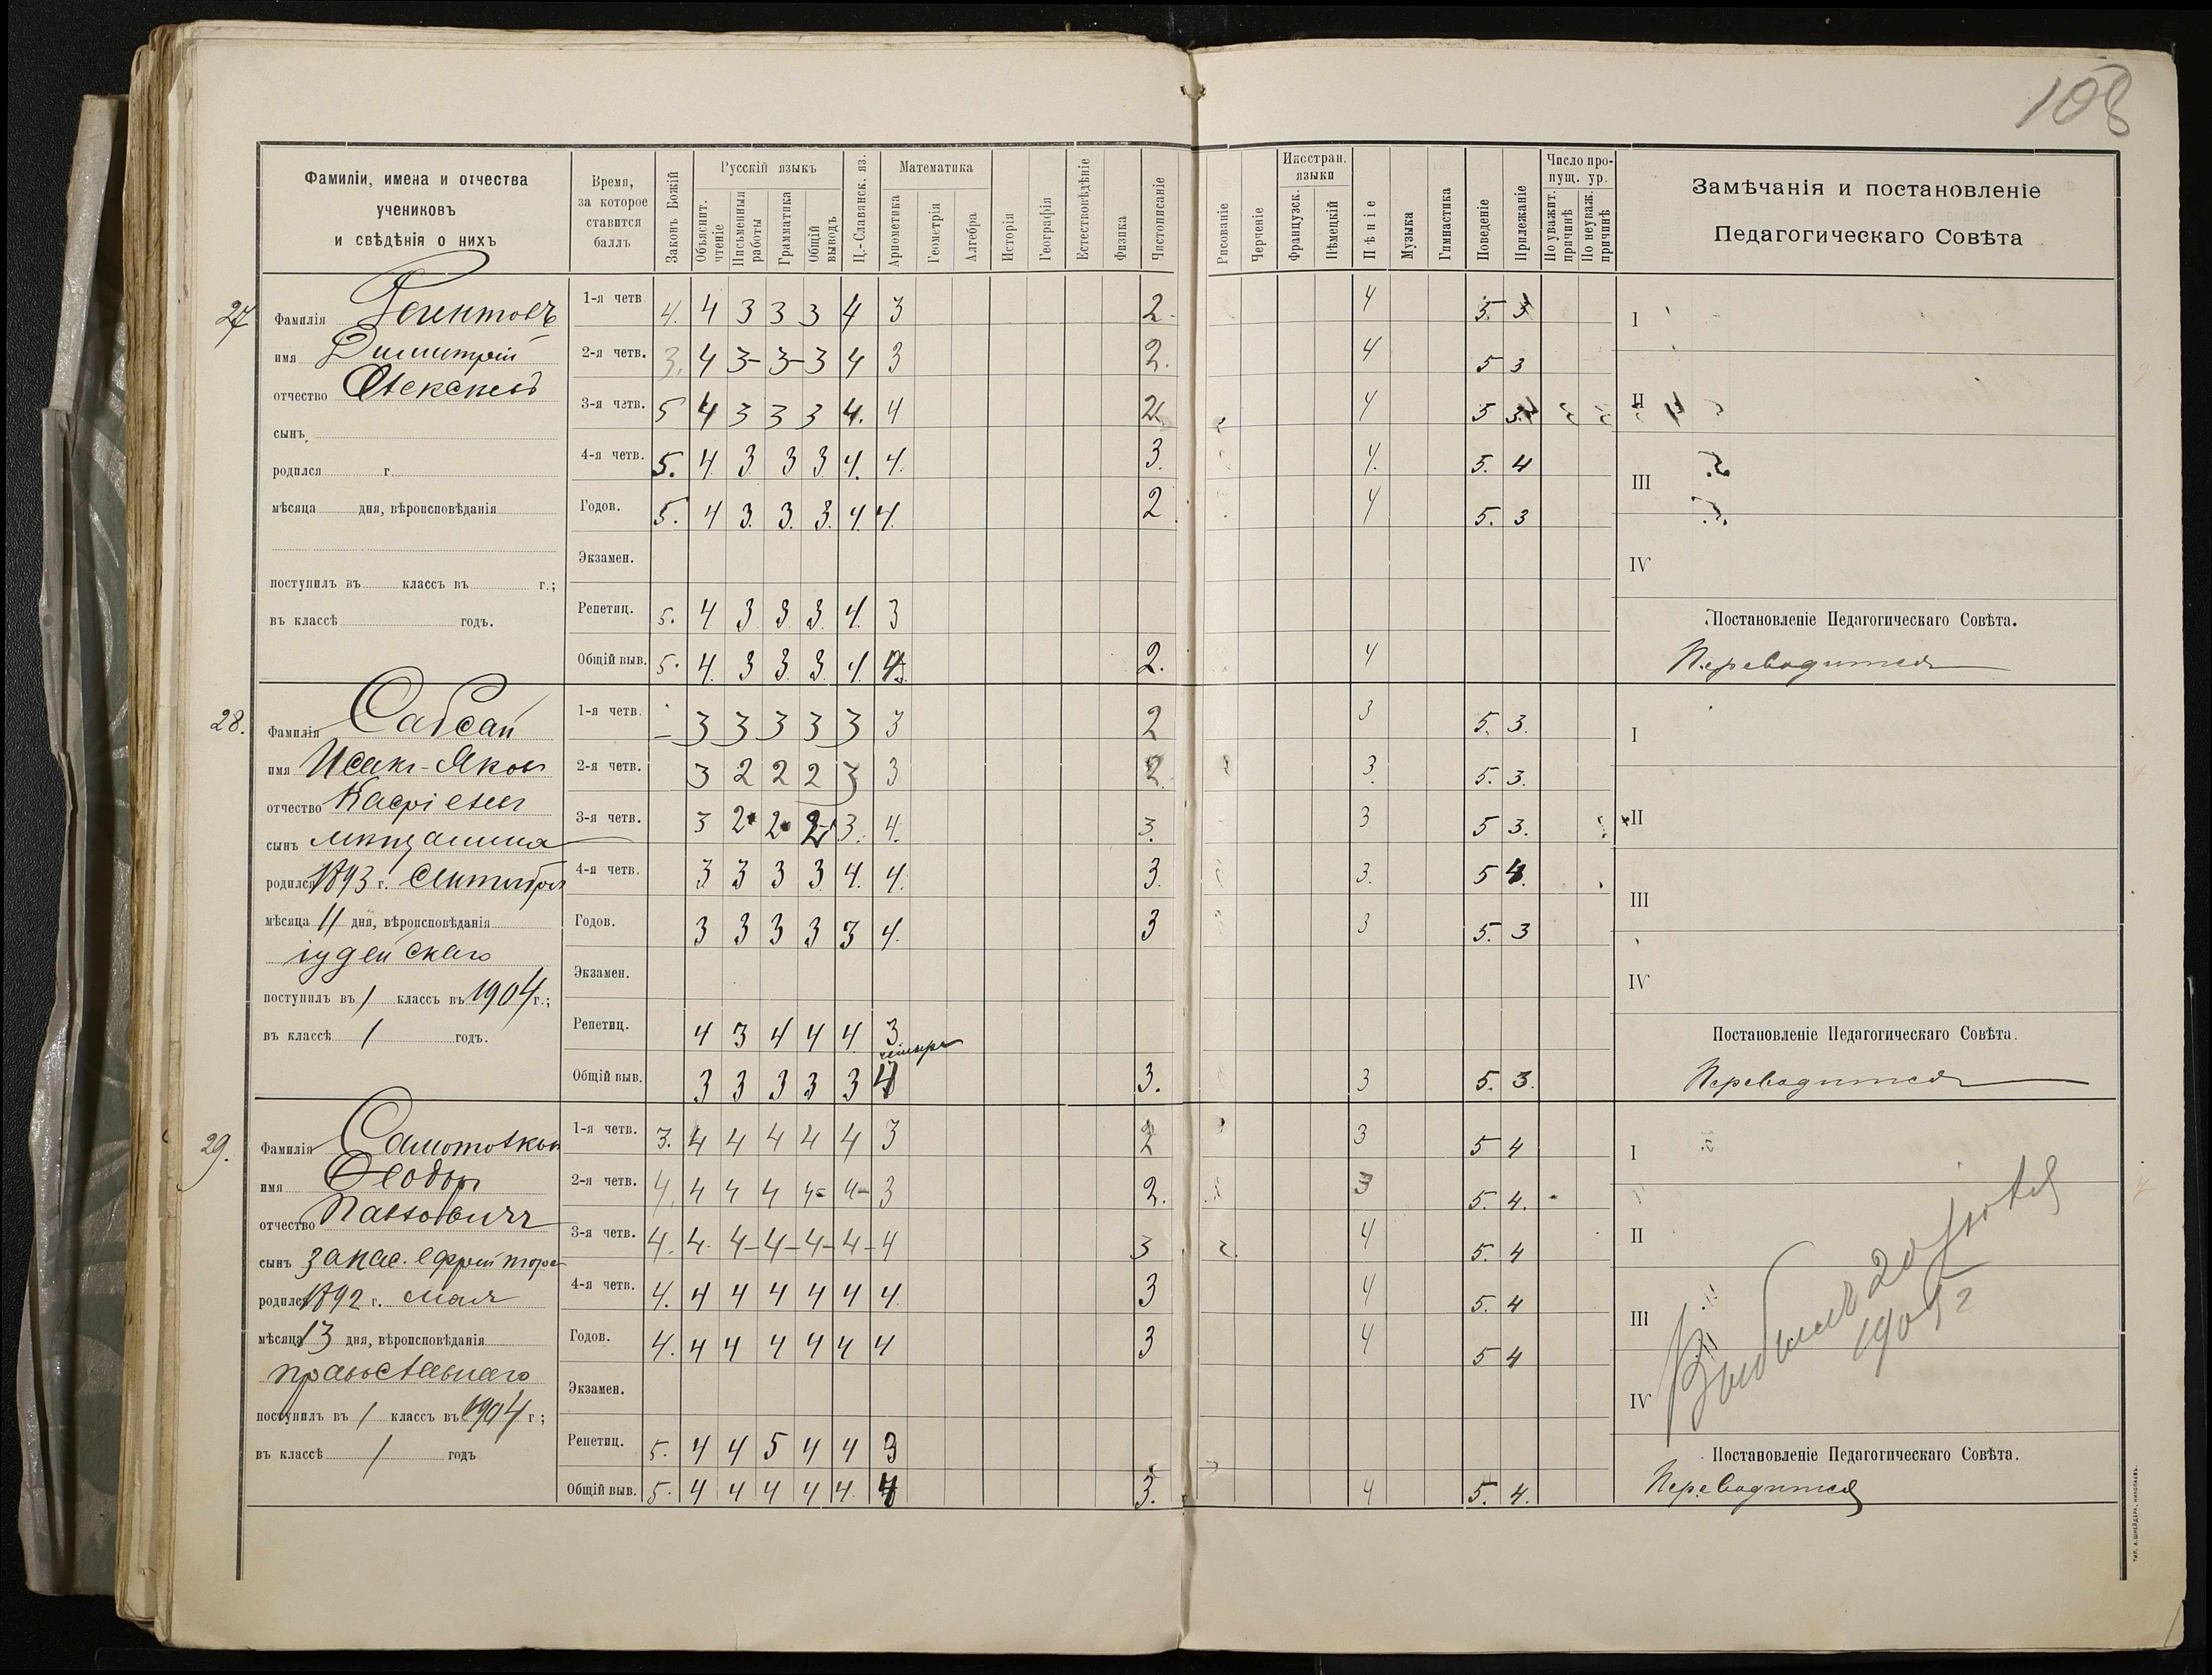 108
Фамиліи, имена и отчества
учениковъ
и свѣдѣнія о нихъ
Время,
за которое
ставится
баллъ
Законъ Божій
Русскій языкъ
Объяснит.
чтеніе
Письменныя
работы
Грамматика
Общій
выводъ
Ц.-Славянск. яз.
Математика
Ариѳметика
Геометрія
Алгебра
Исторія
Географія
Естествовѣдѣніе
Физика
Чистописаніе
Рисованіе
Черченіе
Иностран.
языки
Французск.
Нѣмецкій
Пѣніе
Музыка
Гимнастика
Поведеніе
Прилежаніе
Число про-
пущ. ур.
По уважит.
причинѣ
По неуваж.
причинѣ
Замѣчанія и постановленіе
Педагогическаго Совѣта
27
Фамилія
имя Димитрій
отчество
сынъ
родился г.
мѣсяца дня, вѣроисповѣданія
поступилъ въ классъ въ г.;
въ классѣ годъ.
1-я четв. 4. 4 3 3 3 4 3 2 4 5. 3
2-я четв. 3. 4 3 3 3 4 3 2. 4 5 3
3-я четв. 5 4 3 3 3 4. 4 2 4 5
4-я четв. 5. 4. 3 3 3 4. 4. 3. 4. 5. 4
Годов. 5. 4 3. 3. 3. 4. 4. 2 4 5. 3
Экзамен.
Репетиц. 5. 4 3 3. 3. 4. 3
Общій выв. 5. 4. 3 3. 3. 4. 2. 4
I
II
III
IV
Постановленіе Педагогическаго Совѣта.
Переводится
28.
Фамилія Сабсай
имя Исакъ-Яковъ
отчество
сынъ мѣщанина
родился 1893 г. Сентября
мѣсяца 11 дня, вѣроисповѣданія
іудейскаго
поступилъ въ 1 классъ въ 1904 г.;
въ классѣ 1 годъ.
1-я четв. – 3 3 3 3 3 3 2 3 5. 3.
2-я четв. 3 2 2 2 3 3 2. 3. 5. 3.
3-я четв. 3 2 2 2 3. 4. 3. 3 5 3.
4-я четв. 3 3 3 3 4. 4. 3. 3. 5 4.
Годов. 3 3 3 3 3 4. 3 3 5. 3
Экзамен.
Репетиц. 4 3 4 4 4. 3
четыре
Общій выв. 3 3 3 3 3 4 3. 3 5. 3.
I
II
III
IV
Постановленіе Педагогическаго Совѣта.
Переводится
29.
Фамилія
имя Ѳеодоръ
отчество
сынъ запас. ефрейтора
родился 1892 г. мая
мѣсяца 13 дня, вѣроисповѣданія
православнаго
поступилъ въ 1 классъ въ 1904 г.;
въ классѣ 1 годъ
1-я четв. 3. 4 4 4 4 4 3 2 3 5 4
2-я четв. 4. 4 4 4 4 4 3 2. 3 5. 4.
3-я четв. 4. 4. 4 4 4 4 4 3 4 5. 4
4-я четв. 4. 4 4 4 4 4 4. 3 4 5. 4
Годов. 4. 4 4 4 4 4 4 3 4 5 4
Экзамен.
Репетиц. 5. 4 4 5 4 4 3
Общій выв. 5. 4 4 4 4 4. 4 3. 4 5. 4.
I
II
III
IV
Выбылъ 20 Іюля
1905 г
Постановленіе Педагогическаго Совѣта.
Переводится
ТИП. А. ШНЕЙДЕРА, НИКОЛАЕВЪ.